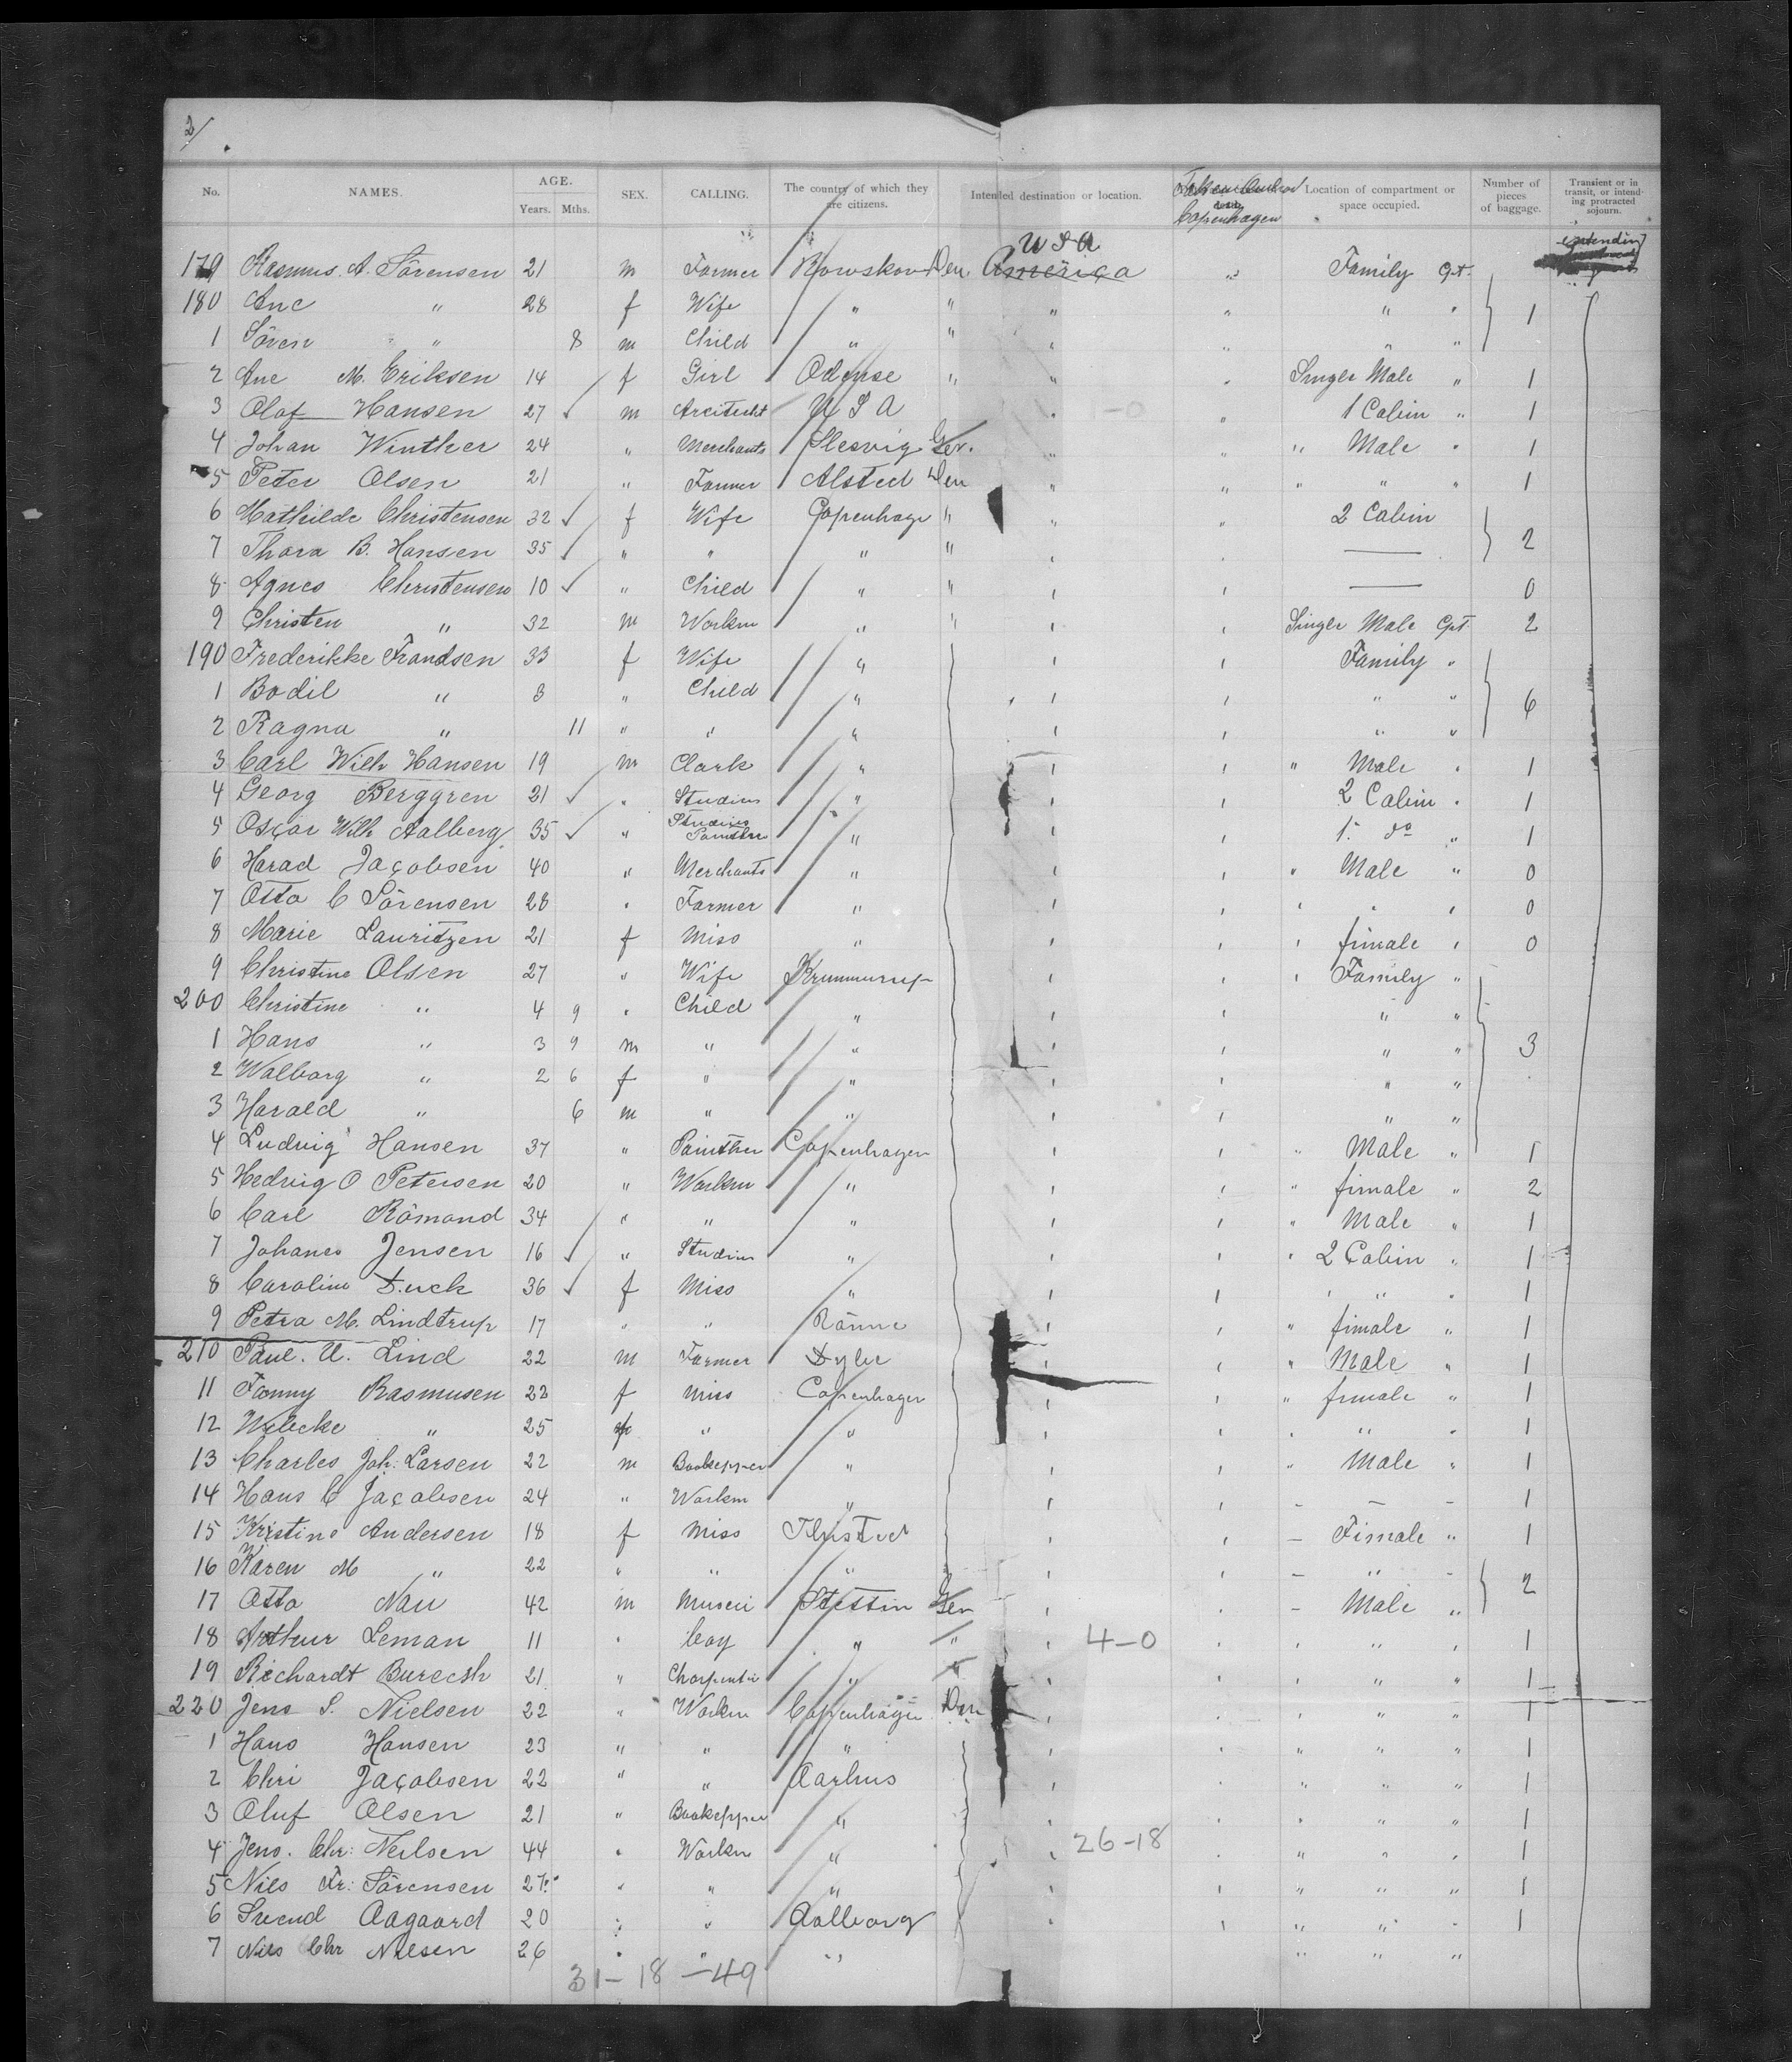 2/
No. NAMES. AGE. Years. Mths. SEX. CALLING. The country of which they are citizens. Intended destination or location. Copenhagen Location of compartment or space occupied. Number of pieces of baggage. Transient or in transit, or intending protracted sojourn.
U S A
179 Rasmus. A. Sörensen 21 m Farmer Den America Family Cpt.
180 Ane " 28 f Wife " " " " " " 1
1 Sören " 8 m Child " " " " " "
2 Ane M. Eriksen 14 f Girl Odense " " " Singer Male " 1
3 Olaf Hansen 27 ✓ m Arcitecht U S A " -0 " 1 Cabin " 1
4 Johan Winther 24 " Merchants Slesvig Ger. " " " Male " 1
5 Peter Olsen 21 " Farmer Alsted Den " " " " " 1
6 Mathilde Christensen 32 ✓ f Wife Copenhage " " " 2 Cabin
7 Thora B. Hansen 35 ✓ " " " " " " — 2
8 Agnes Christensen 10 ✓ " Child " " " " — 0
9 Christen " 32 m Workm " " " " Singer Male Cpt 2
190 Frederikke Frandsen 33 f Wife " " " Family "
1 Bodil " 3 " Child " " " " " 6
2 Ragna " 11 " " " " " " "
3 Carl Wilh Hansen 19 m Clark " " " " Male " 1
4 Georg Berggren 21 ✓ " Studius " " " 2 Cabin " 1
5 Oscar Wilh Aalberg 35 ✓ " Studius " " " 1. do " 1
6 Harad Jacobsen 40 " Merchants " " " " Male " 0
7 Otto C Sörensen 28 " Farmer " " " " " " 0
8 Marie Lauritzen 21 f Miss " " " " fimale " 0
9 Christine Olsen 27 " Wife Krummerup " " " Family "
200 Christine " 4 9 " Child " " " " "
1 Hans " 3 9 m " " " " " " 3
2 Walborg " 2 6 f " " " " " "
3 Harald " 6 m " " " " " "
4 Ludvig Hansen 37 " Painther Copenhagen " " " Male " 1
5 Hedvig O Petersen 20 " Workm " " " " fimale " 2
6 Carl Römand 34 " " " " " " Male " 1
7 Johanes Jensen 16 ✓ " Studius " " " " 2 Cabin " 1
8 Caroline Duck 36 ✓ f Miss " " " " " " 1
9 Petra M. Lindtrup 17 " " Rönne " " " fimale " 1
210 Paul. U. Lind 22 m Farmer " " " Male " 1
11 Fanny Rasmusen 22 f Miss Copenhagen " " " fimale " 1
12 Wibeke " 25 f " " " " " " " 1
13 Charles Joh: Larsen 22 m Bookepper " " " " Male " 1
14 Hans C Jacobsen 24 " Workm " " " - - - 1
15 Kristine Andersen 18 f Miss Thisted " - Fimale " 1
16 Karen M " 22 " " " " " - " -
17 Otto Nau 42 m Stettin Ger " " - Male " 2
18 Arthur Leman 11 " boy " " " 4-0 " " " " 1
19 Richardt Burecsh 21 " Charpentie " " " " " " 1
220 Jens S. Nielsen 22 " Workm Copenhagen Den " " " " " 1
1 Hans Hansen 23 " " " " " " " " 1
2 Chri Jacobsen 22 " " Aarhus " " " " " 1
3 Oluf Olsen 21 " Bookepper " " " " " " 1
4 Jens. Chr: Neilsen 44 " Workm " " 26-18 " " " " 1
5 Niels Fr: Sörensen 27 " " " " " " " " 1
6 Svend Aagaard 20 " " Aalborg " " " " " 1
7 Niels Chr Nielsen 26 " " " " " "
31-18-49